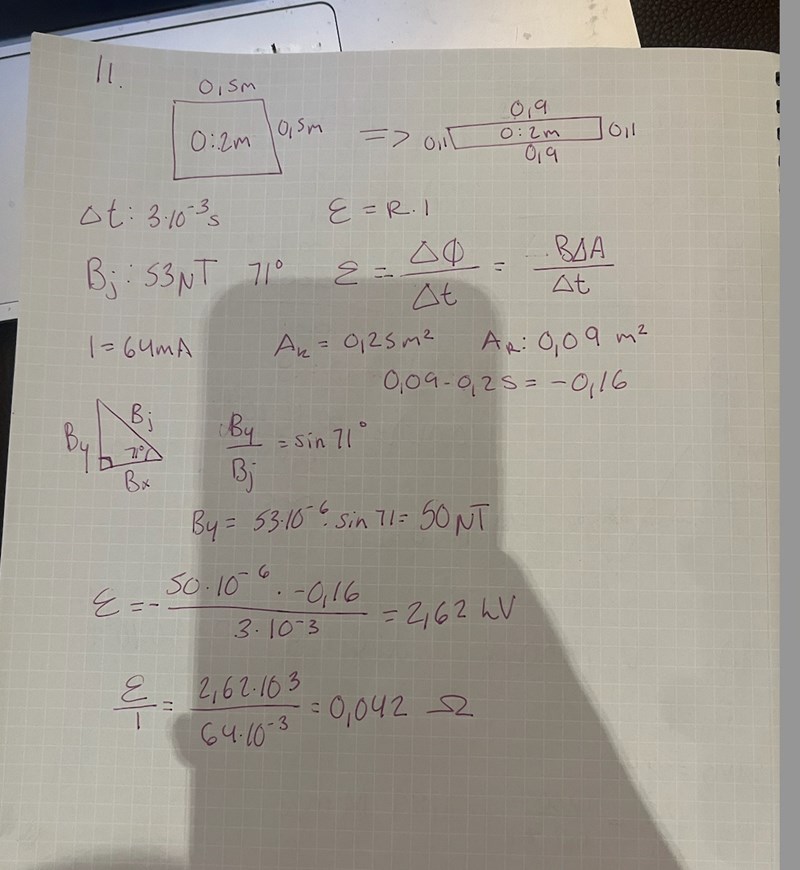 11.
0,5m
0:2m 0,5m => 0,1 0,9 0:2m 0,1
0,9
Δt: 3·10⁻³s ε = R·I
Bj: 53 NT 71° ε = ΔΦ/Δt = BΔA/Δt
I = 64mA Ak = 0,25m² AR: 0,09 m²
0,09-0,25 = -0,16
By Bj 71° Bx By/Bj = sin 71°
By = 53·10⁻⁶·sin 71 = 50 NT
ε = - 50·10⁻⁶ · -0,16 / 3·10⁻³ = 2,62 hV
ε/I = 2,62·10³ / 64·10⁻³ = 0,042 Ω